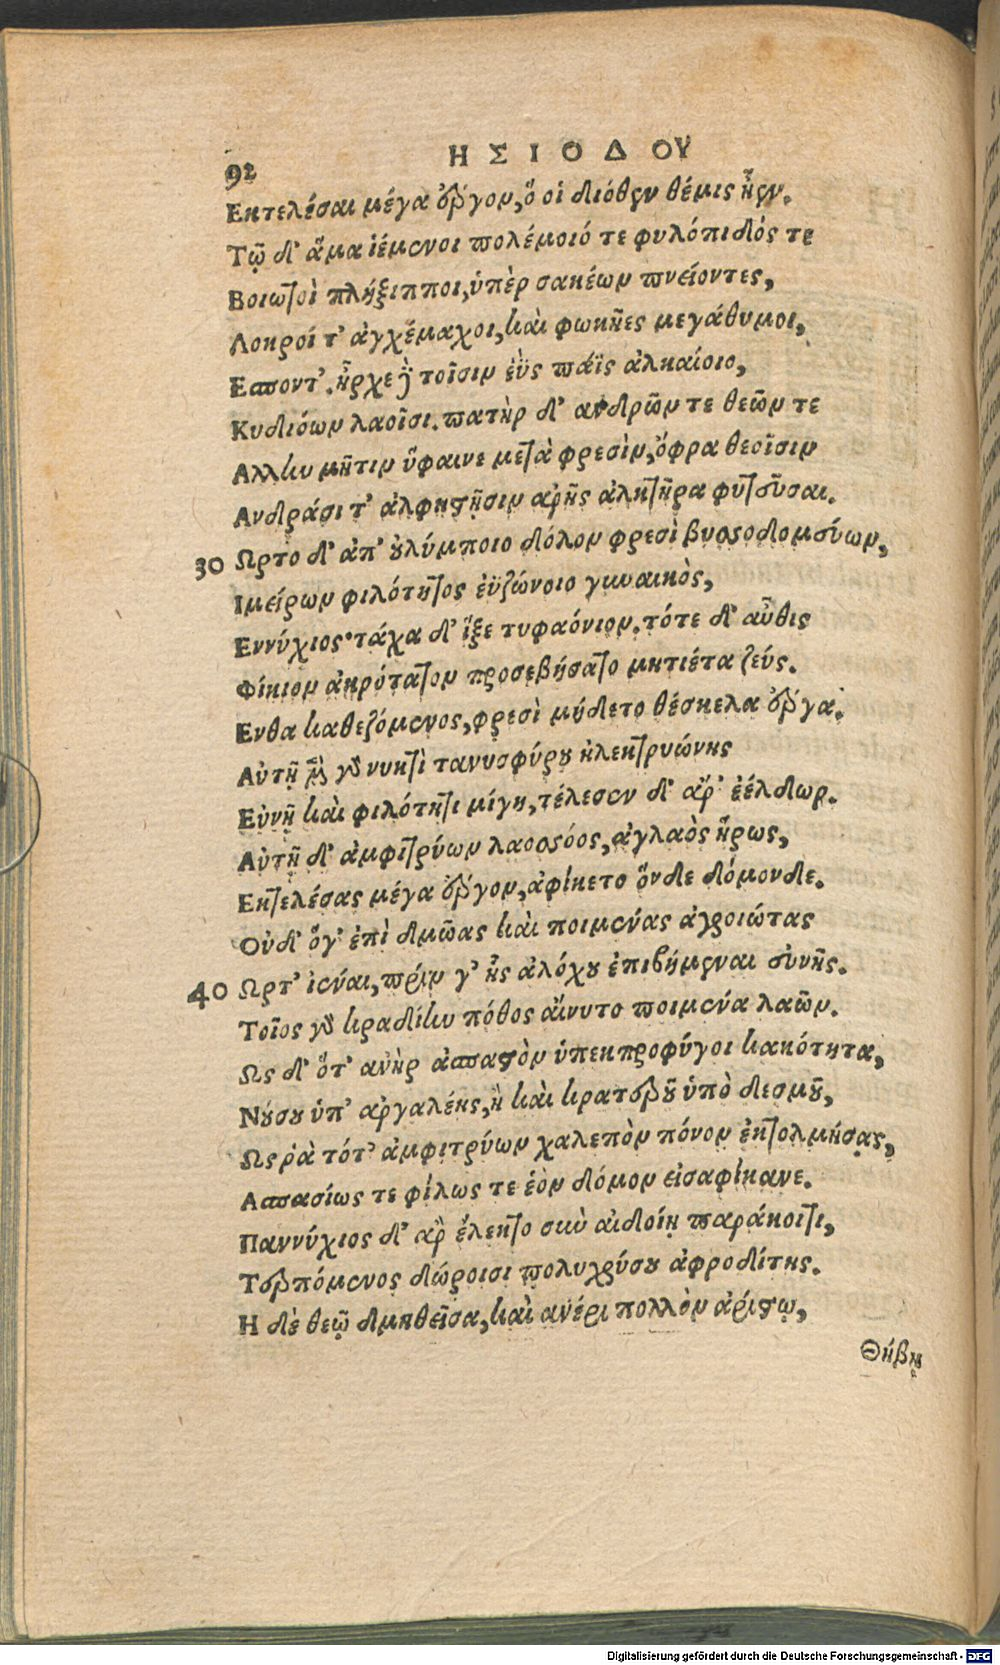 92
ΗΣΙΟΔΟΥ
Εκτελέσαι μέγα ἔργον, ὅ οἱ διόθεν θέμις ἦεν.
Τῷ δ' ἅμα ἱέμενοι πολέμοιό τε φυλόπιδός τε
Βοιωτοὶ πλήξιπποι, ὑπὲρ σακέων πνείοντες,
Λοκροί τ' ἀγχέμαχοι, καὶ φωκῆες μεγάθυμοι,
Εσποντ'. ἦρχε δὲ τοῖσιν ἐῢς πάϊς ἀλκαίοιο,
Κυδιόων λαοῖσι. πατὴρ δ' ανδρῶν τε θεῶν τε
Αλλην μῆτιν ὕφαινε μετὰ φρεσὶν, ὄφρα θεοῖσιν
Ανδράσι τ' ἀλφηστῇσιν αρῆς ἀλκτῆρα φυτεῦσαι.
30 Ωρτο δ' ἀπ' οὐλύμποιο δόλον φρεσὶ βυσσοδομεύων,
Ιμείρων φιλότητος ἐϋζώνοιο γυναικὸς,
Εννύχιος· τάχα δ' ἷξε τυφαόνιον. τότε δ' αὖθις
Φίκιον ἀκρότατον προσεβήσατο μητιέτα ζεύς.
Ενθα καθεζόμενος, φρεσὶ μήδετο θέσκελα ἔργα.
Αὐτῇ μὲν γὰρ νυκτὶ τανυσφύρου ἠλεκτρυώνης
Εὐνῇ καὶ φιλότητι μίγη, τέλεσεν δ' αρ' ἐέλδωρ.
Αὐτῇ δ' ἀμφιτρύων λαοσσόος, ἀγλαὸς ἥρως,
Εκτελέσας μέγα ἔργον, ἀφίκετο ὅνδε δόμονδε.
Οὐδ' ὅγ' ἐπὶ δμῶας καὶ ποιμένας ἀγροιώτας
40 Ωρτ' ἰέναι, πρίν γ' ἧς ἀλόχου ἐπιβήμεναι εὐνῆς.
Τοῖος γὰρ κραδίην πόθος αἴνυτο ποιμένα λαῶν.
Ως δ' ὅτ' ανὴρ ἀσπαστὸν ὑπεκπροφύγοι κακότητα,
Νούσου ὑπ' αργαλέης, ἢ καὶ κρατεροῦ ὑπὸ δεσμοῦ,
Ως ῥὰ τότ' ἀμφιτρύων χαλεπὸν πόνον ἐκτολμήσας,
Ασπασίως τε φίλως τε ἑὸν δόμον εἰσαφίκανε.
Παννύχιος δ' αρ' ἔλεκτο σὺν αἰδοίῃ παράκοιτι,
Τερπόμενος δώροισι πολυχρύσου ἀφροδίτης.
Η δὲ θεῷ δμηθεῖσα, καὶ ανέρι πολλὸν ἀρίστῳ,
Θήβῃ
Digitalisierung gefördert durch die Deutsche Forschungsgemeinschaft - DFG